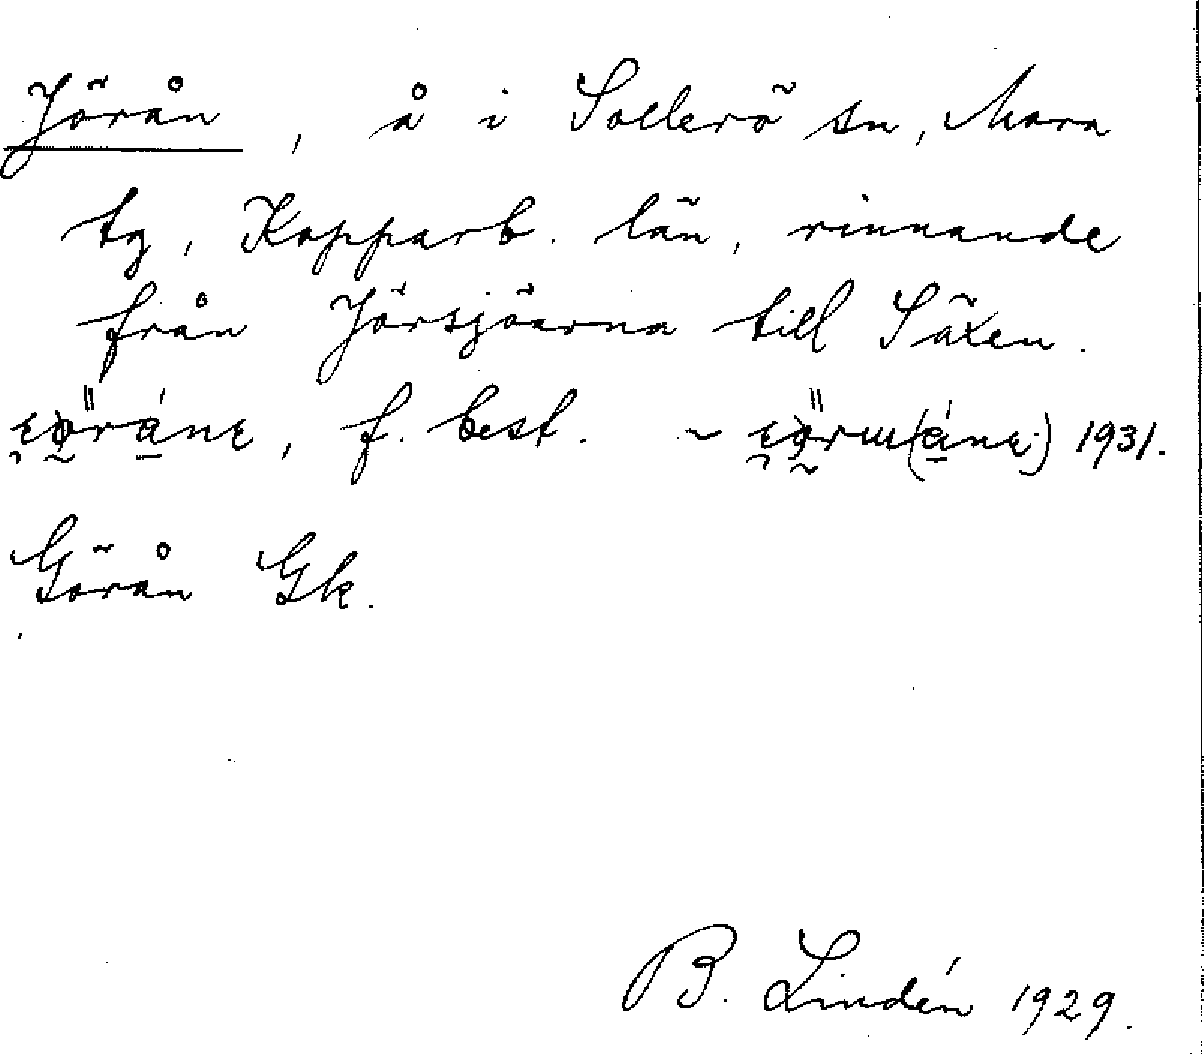 Jörån, å i Sollerö sn, Mora
tg, Kopparb. län, rinnande
från Jörsjöarna till Säxen.
f. best. ~ 1931.
Görån Gk.
B. Lindén 1929.